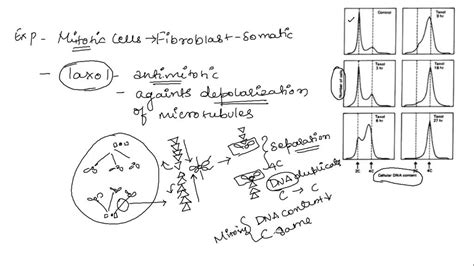 Exp - Mitotic Cells → Fibroblast - Somatic
- Taxol - antimitotic
- againts depolarization
of microtubules
Sepalation
4C
DNA duplicate
C → C
Mitosis DNA content ↓
C - same
Control
Taxol 3 hr
Taxol 6 hr
Taxol 9 hr
Taxol 18 hr
Taxol 27 hr
Number of cells
2C 4C 2C 4C
Cellular DNA content